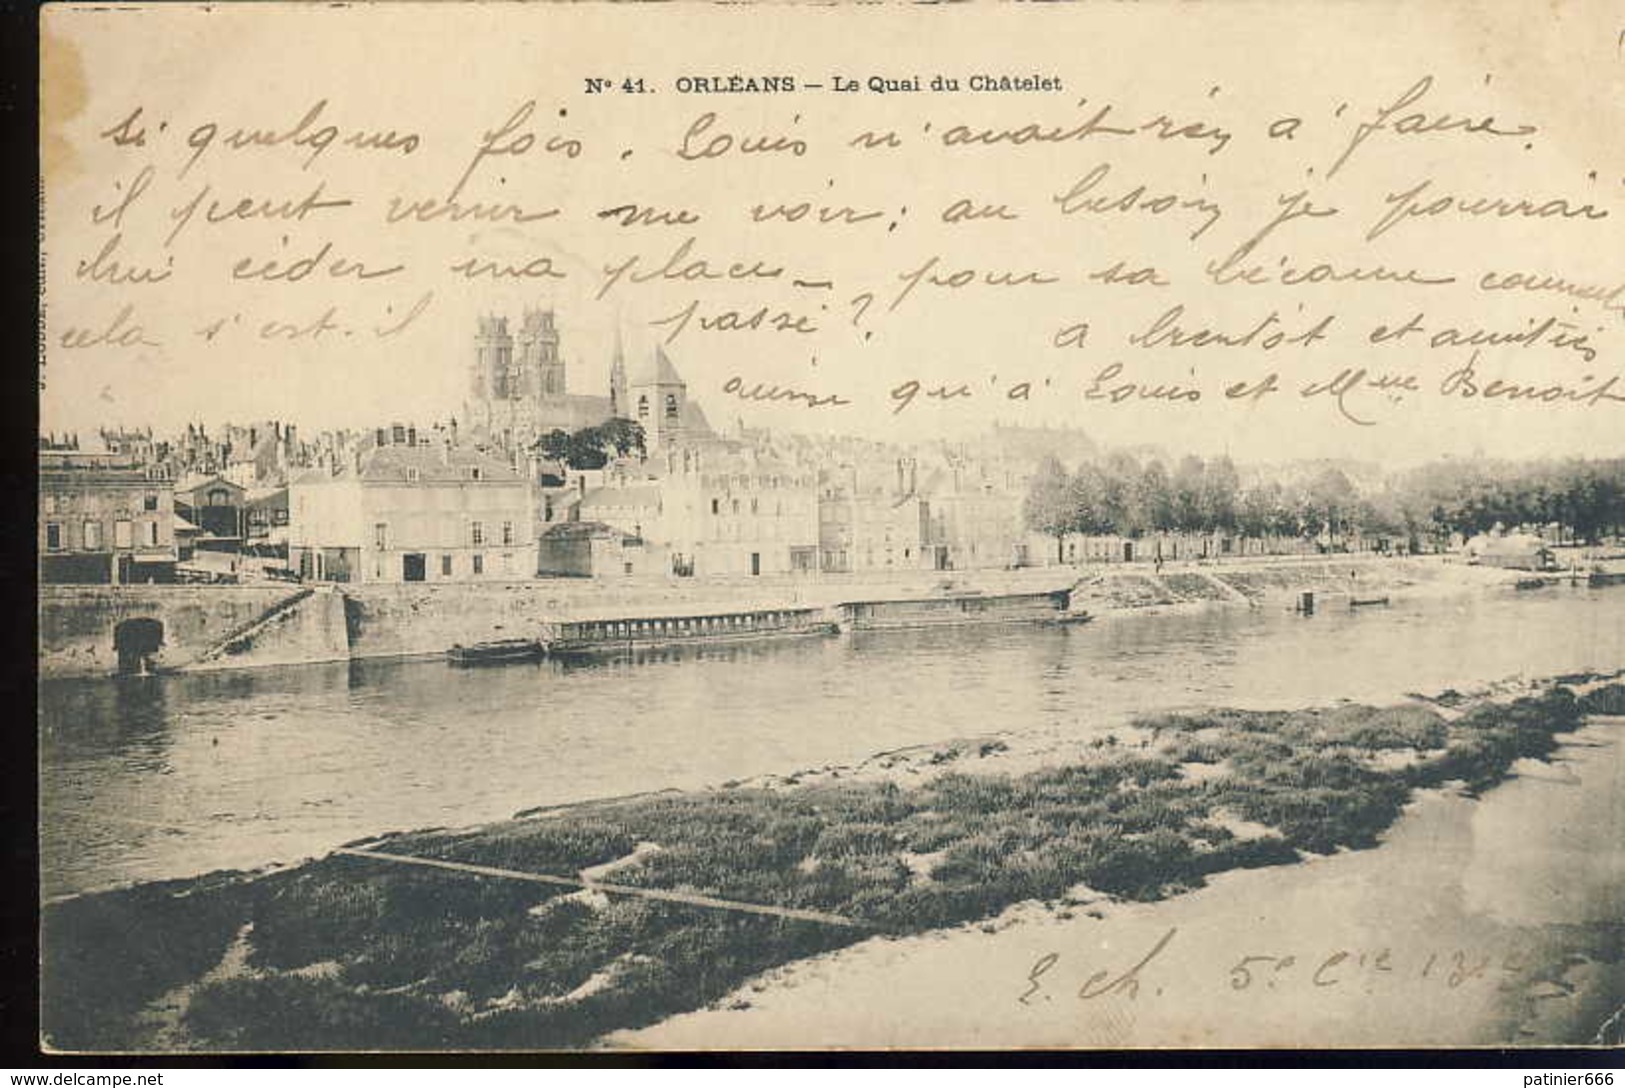 N° 41. ORLÉANS — Le Quai du Châtelet
si quelques fois. Louis n'avait rien à faire.
il peut venir me voir; au besoin je pourrai
lui céder ma place pour sa bécanne comment
cela s'est-il passé? a bientôt et amitiés
ainsi qu'à Louis et Mme Benoit
E. Ch. 5e Cie 131e
www.delcampe.net
patinier666